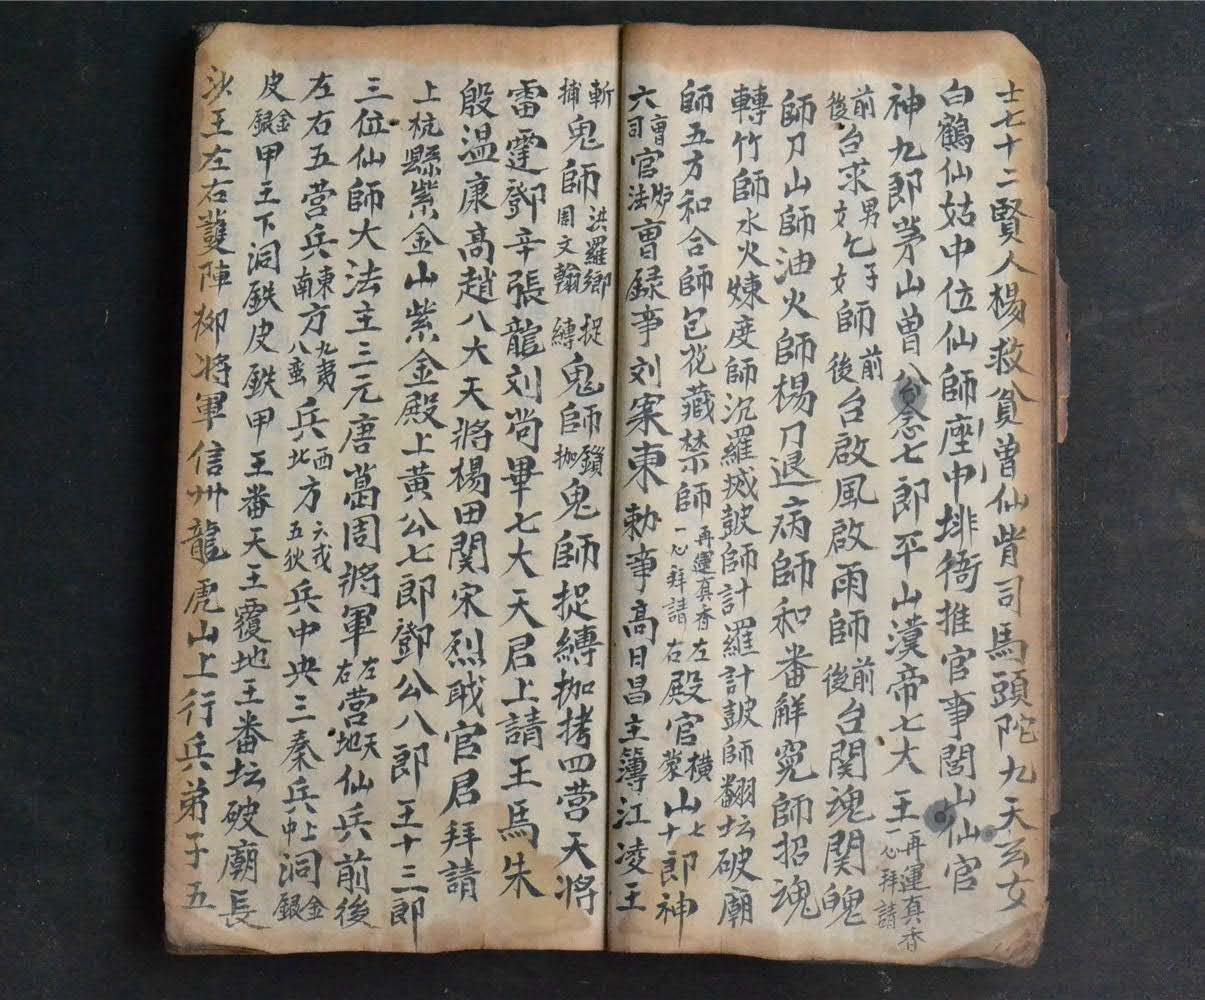 士七十二賢人楊救貧曾仙背司馬頭陀九天玄女
白鶴仙姑中位仙師座中排衙推官事閭山仙官
神九郎茅山曾八台念七郎平山漠帝七大王一心拜請再運真香
前後台求男女乞子女師前後台啟風啟雨師前後台関魂関魄
師刀山師油火師楊刀退病師和番解冤師招魂
轉竹師水火煉度師沉羅滅皷師計羅計皷師翻坛破廟
師五方和合師包花藏禁師再運真香一心拜請左右殿官橫蒙山七十郎神
六曹司官炉法曹録事刘案東勅事高日昌主簿江凌王
斬捕鬼師洪羅鄉周文翰捉縛鬼師鎖枷鬼師捉縛枷拷四营天將
雷霆鄧辛張龍刘尚畢七大天君上請王馬朱
殷温康高趙八大天將楊田関宋烈戝官君拜請
上杭縣紫金山紫金殿上黄公七郎鄧公八郎王十三郎
三位仙師大法主三元唐葛周將軍左右营天地仙兵前後
左右五营兵東南方九夷八蛮兵西北方六戎五狄兵中央三秦兵上中洞金銀
皮金銀甲王下洞鉄皮鉄甲王番天王覆地王番坛破廟長
沙王左右䕶陣柳將軍信卅龍虎山上行兵弟子五